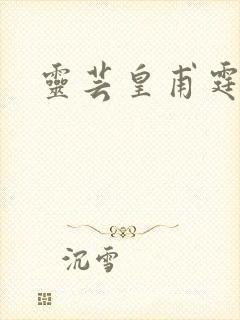 靈芸皇甫霆
沉雪